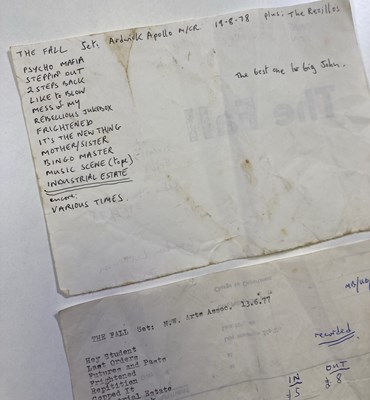 THE FALL Set: Ardwick Apollo M/CR. 19-8-78 plus. The Rezillos
PSYCHO MAFIA
STEPPIN OUT
2 STEPS BACK
LIKE TO BLOW
MESS OF MY
REBELLIOUS JUKEBOX
FRIGHTENED
IT'S THE NEW THING
MOTHER/SISTER
BINGO MASTER
MUSIC SCENE (tape)
INDUSTRIAL ESTATE
encore:
VARIOUS TIMES.
The best one by big John.
The Fall
THE FALL Set: N.W. Arts Assoc. 23.6.77
Her Student
Last Orders
Futures and Pasts
Frightened
Repitition
Copped It
Estate
recorded.
IN OUT
£5 £8